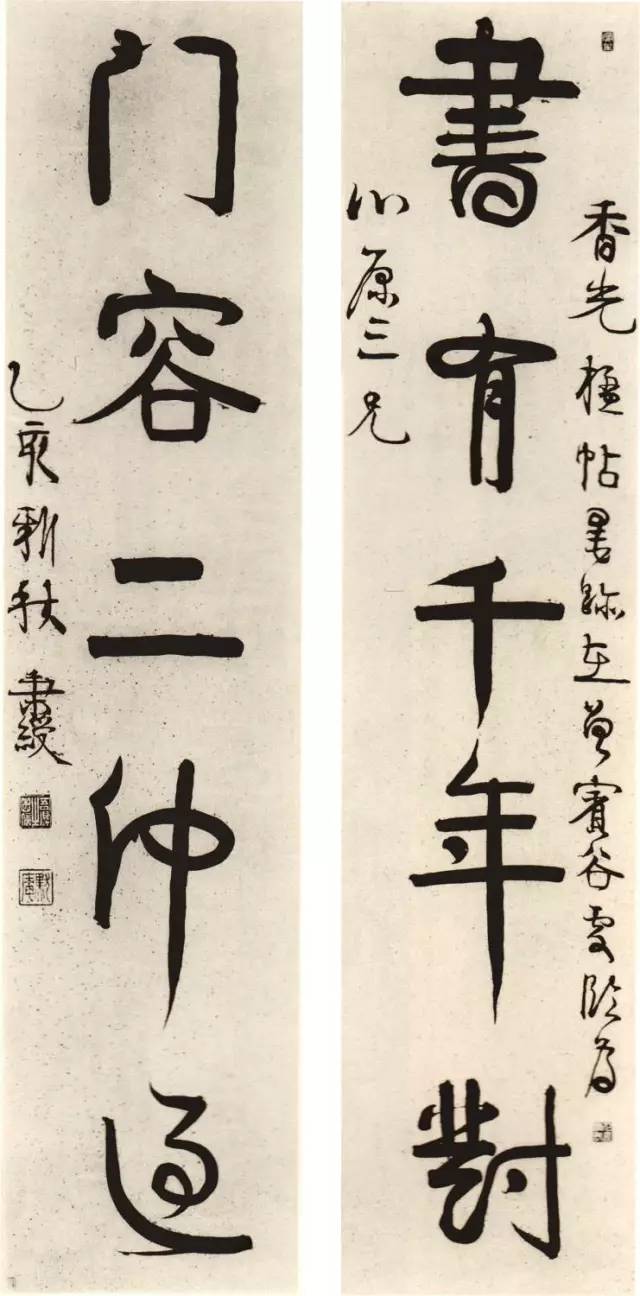 香光楹帖墨跡在曾賓谷處臨為
書有千年對
原三兄
门容二仲過
乙亥新秋秉綬